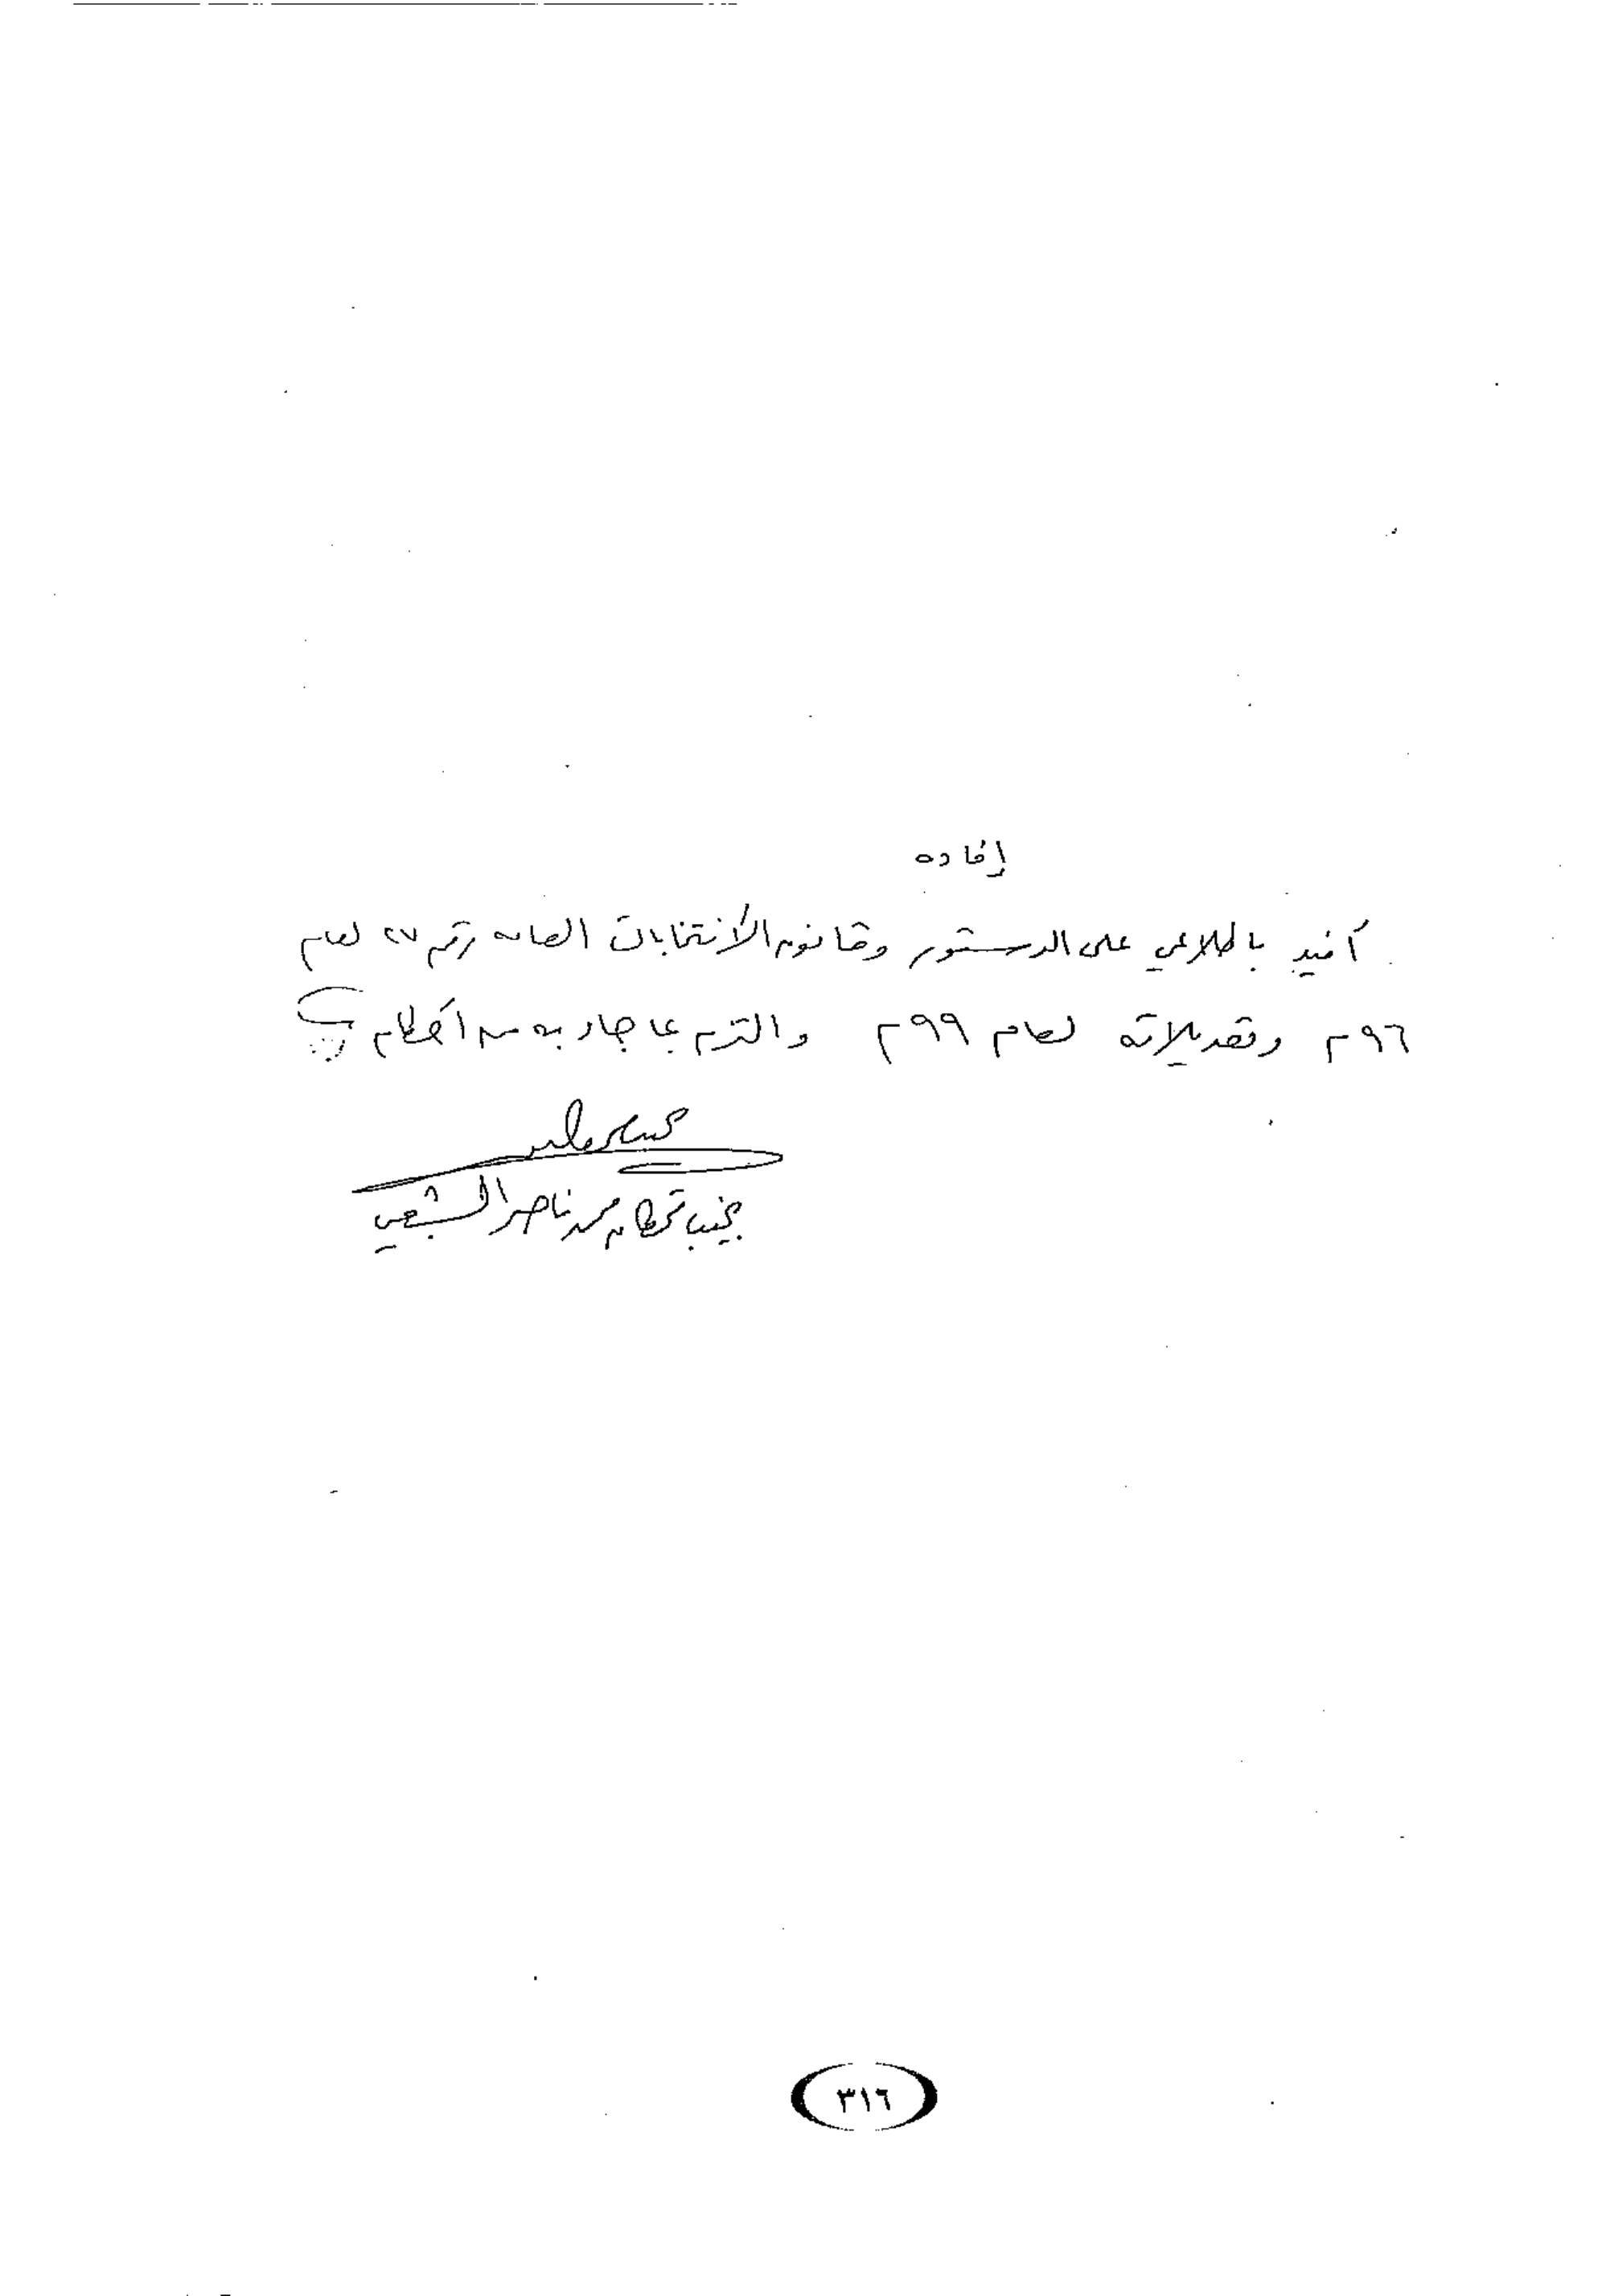 إفاده
أفيد باطلاعي على الدستور وقانون الانتخابات العامه رقم ٢٧ لعام
٩٦م وتعديلاته لعام ٩٩م والتزم بما جاء به من أحكام
نجيب قحطان محمد ناصر الشعبي
٣١٦